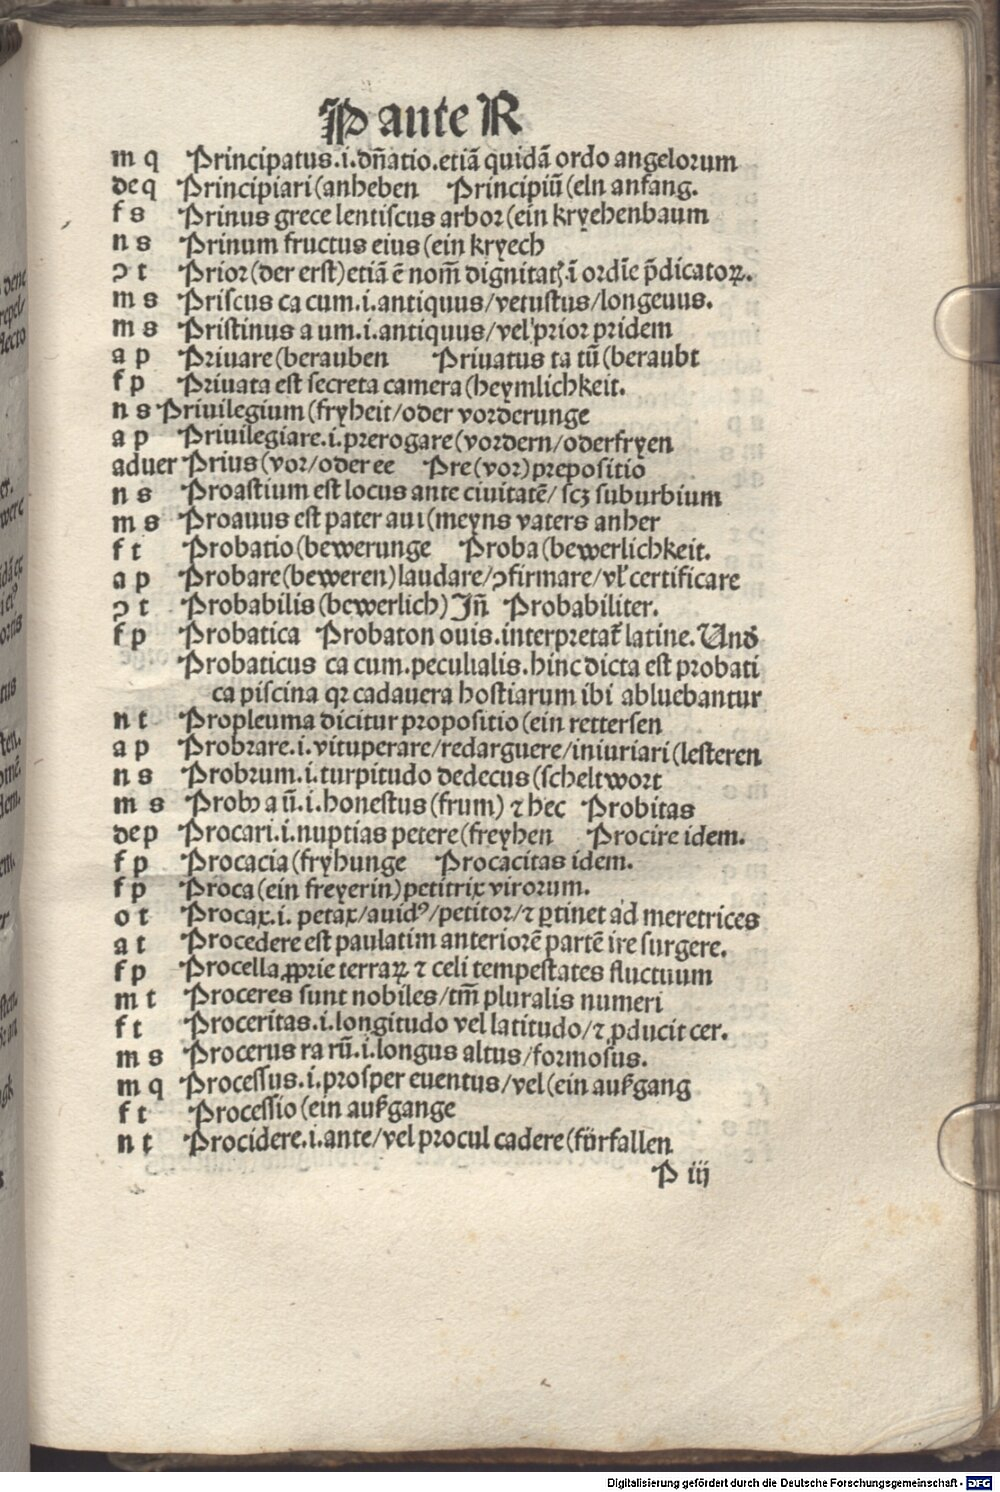 P ante R
m q Principatus.i.dn̄atio.etiā quidā ordo angelorum
de q Principiari(anheben Principiū(eln anfang.
f s Prinus grece lentiſcus arbor(ein kryehenbaum
n s Prinum fructus eius(ein kryech
ↄ t Prior(der erſt)etiā ē nom̄ dignitatꝭ ī ordīe p̄dicatoꝝ.
m s Priſcus ca cum.i.antiquus/vetuſtus/longeuus.
m s Priſtinus a um.i.antiquus/vel prior pridem
a p Priuare(berauben Priuatus ta tū(beraubt
f p Priuata eſt ſecreta camera(heymlichkeit.
n s Priuilegium(fryheit/oder vorderunge
a p Priuilegiare.i.prerogare(vordern/oderfryen
aduer Prius(vor/oder ee Pre(vor)prepoſitio
n s Proaſtium eſt locus ante ciuitatē/ſcꝫ ſuburbium
m s Proauus eſt pater aui(meyns vaters anher
f t Probatio(bewerunge Proba(bewerlichkeit.
a p Probare(beweren)laudare/ↄfirmare/vl̕ certificare
ↄ t Probabilis(bewerlich)Jn̄ Probabiliter.
f p Probatica Probaton ouis.interpretat̄ latine.Und̕
Probaticus ca cum.peculialis.hinc dicta eſt probati
ca piſcina qꝛ cadauera hoſtiarum ibi abluebantur
n t Propleuma dicitur propoſitio(ein retterſen
a p Probꝛare.i.vituperare/redarguere/iniuriari(leſteren
n s Probrum.i.turpitudo dedecus(ſcheltwort
m s Probꝰ a ū.i.honeſtus(frum)⁊ hec Probitas
de p Procari.i.nuptias petere(freyhen Procire idem.
f p Procacia(fryhunge Procacitas idem.
f p Proca(ein freyerin)petitrix virorum.
o t Procax.i. petax/auidꝰ/petitor/⁊ ꝑtinet ad meretrices
a t Procedere eſt paulatim anteriorē partē ire ſurgere.
f p Procella ꝓprie terraꝝ ⁊ celi tempeſtates fluctuum
m t Proceres ſunt nobiles/tm̄ pluralis numeri
f t Proceritas.i.longitudo vel latitudo/⁊ ꝓducit cer.
m s Procerus ra rū.i.longus altus/formoſus.
m q Proceſſus.i.proſper euentus/vel(ein außgang
f t Proceſſio(ein außgange
n t Procidere.i.ante/vel procul cadere(fürfallen
P iij
Digitalisierung gefördert durch die Deutsche Forschungsgemeinschaft - DFG